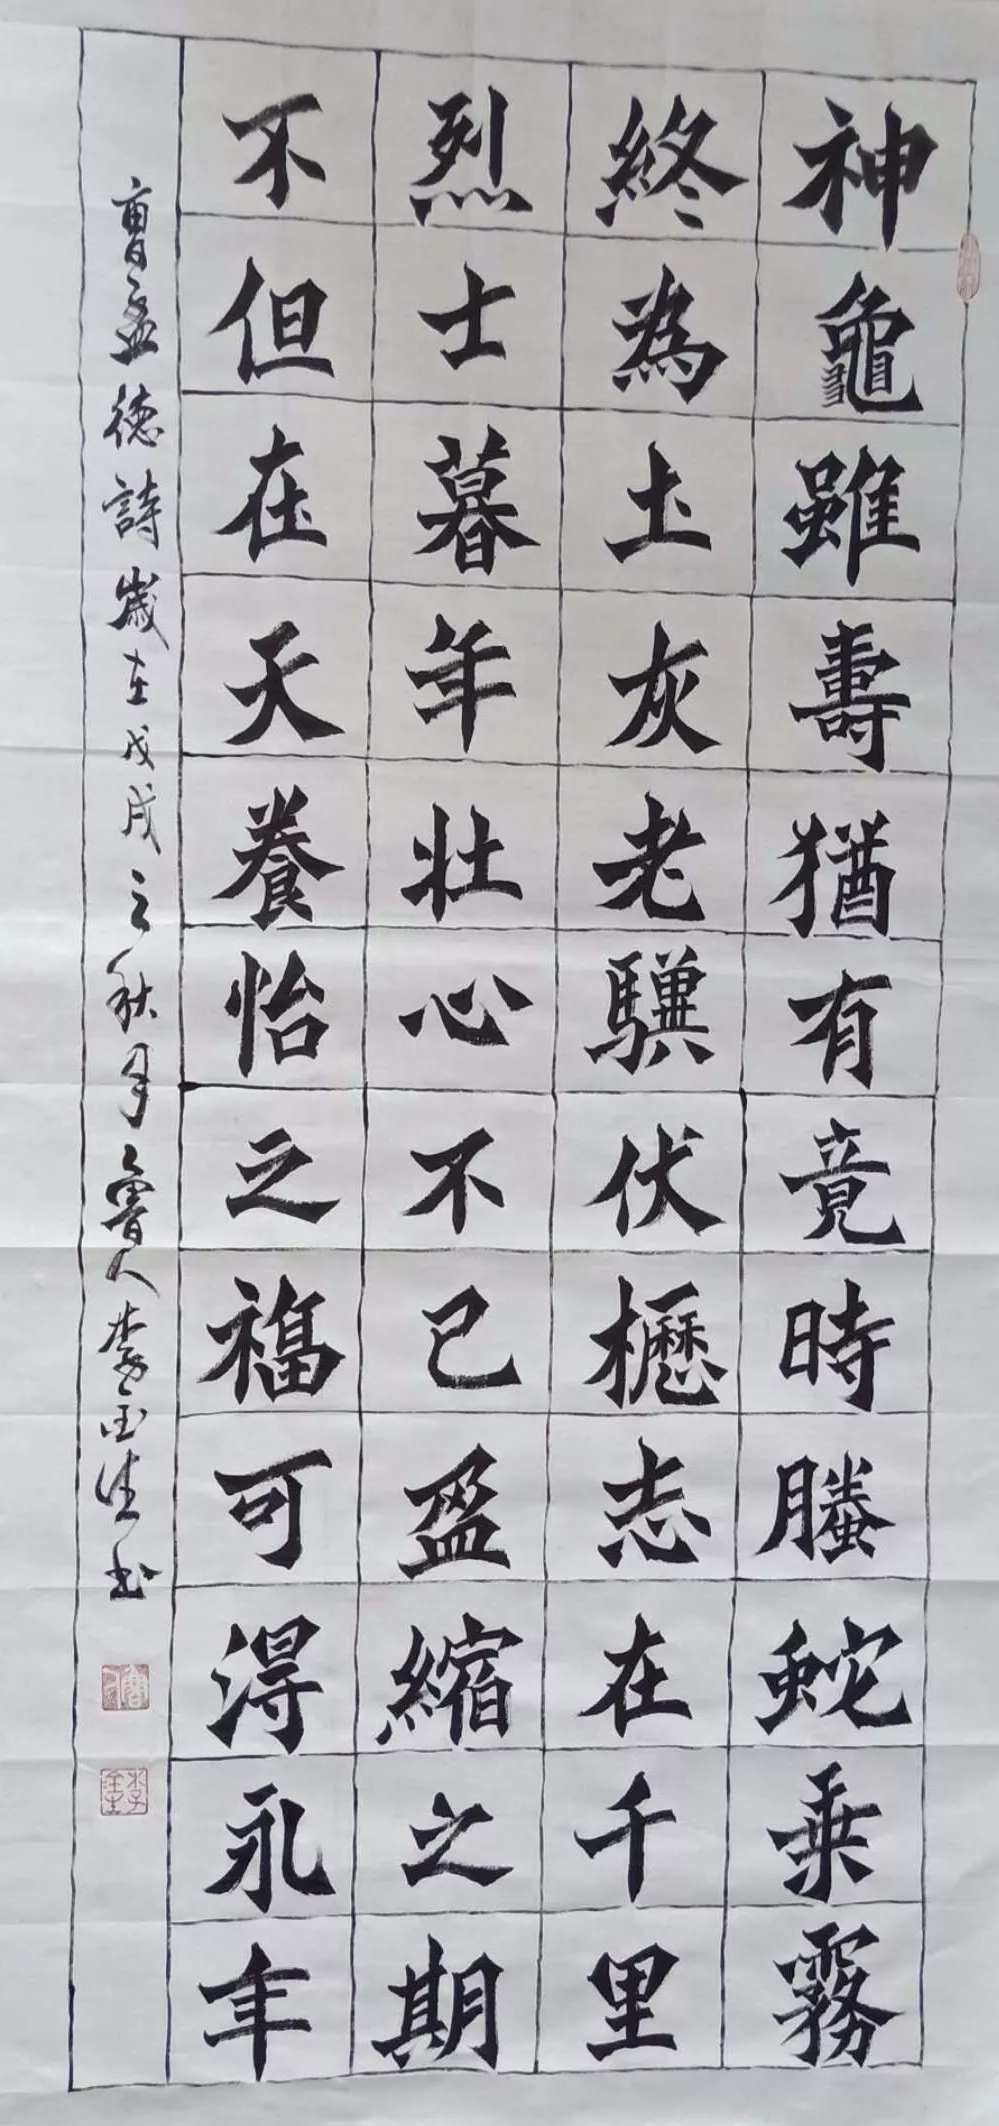 神龜雖壽猶有竟時螣蛇乗霧
終為土灰老驥伏櫪志在千里
烈士暮年壯心不已盈縮之期
不但在天養怡之福可得永年
曹孟德詩歲在戊戌之秋月魯人李玉生书